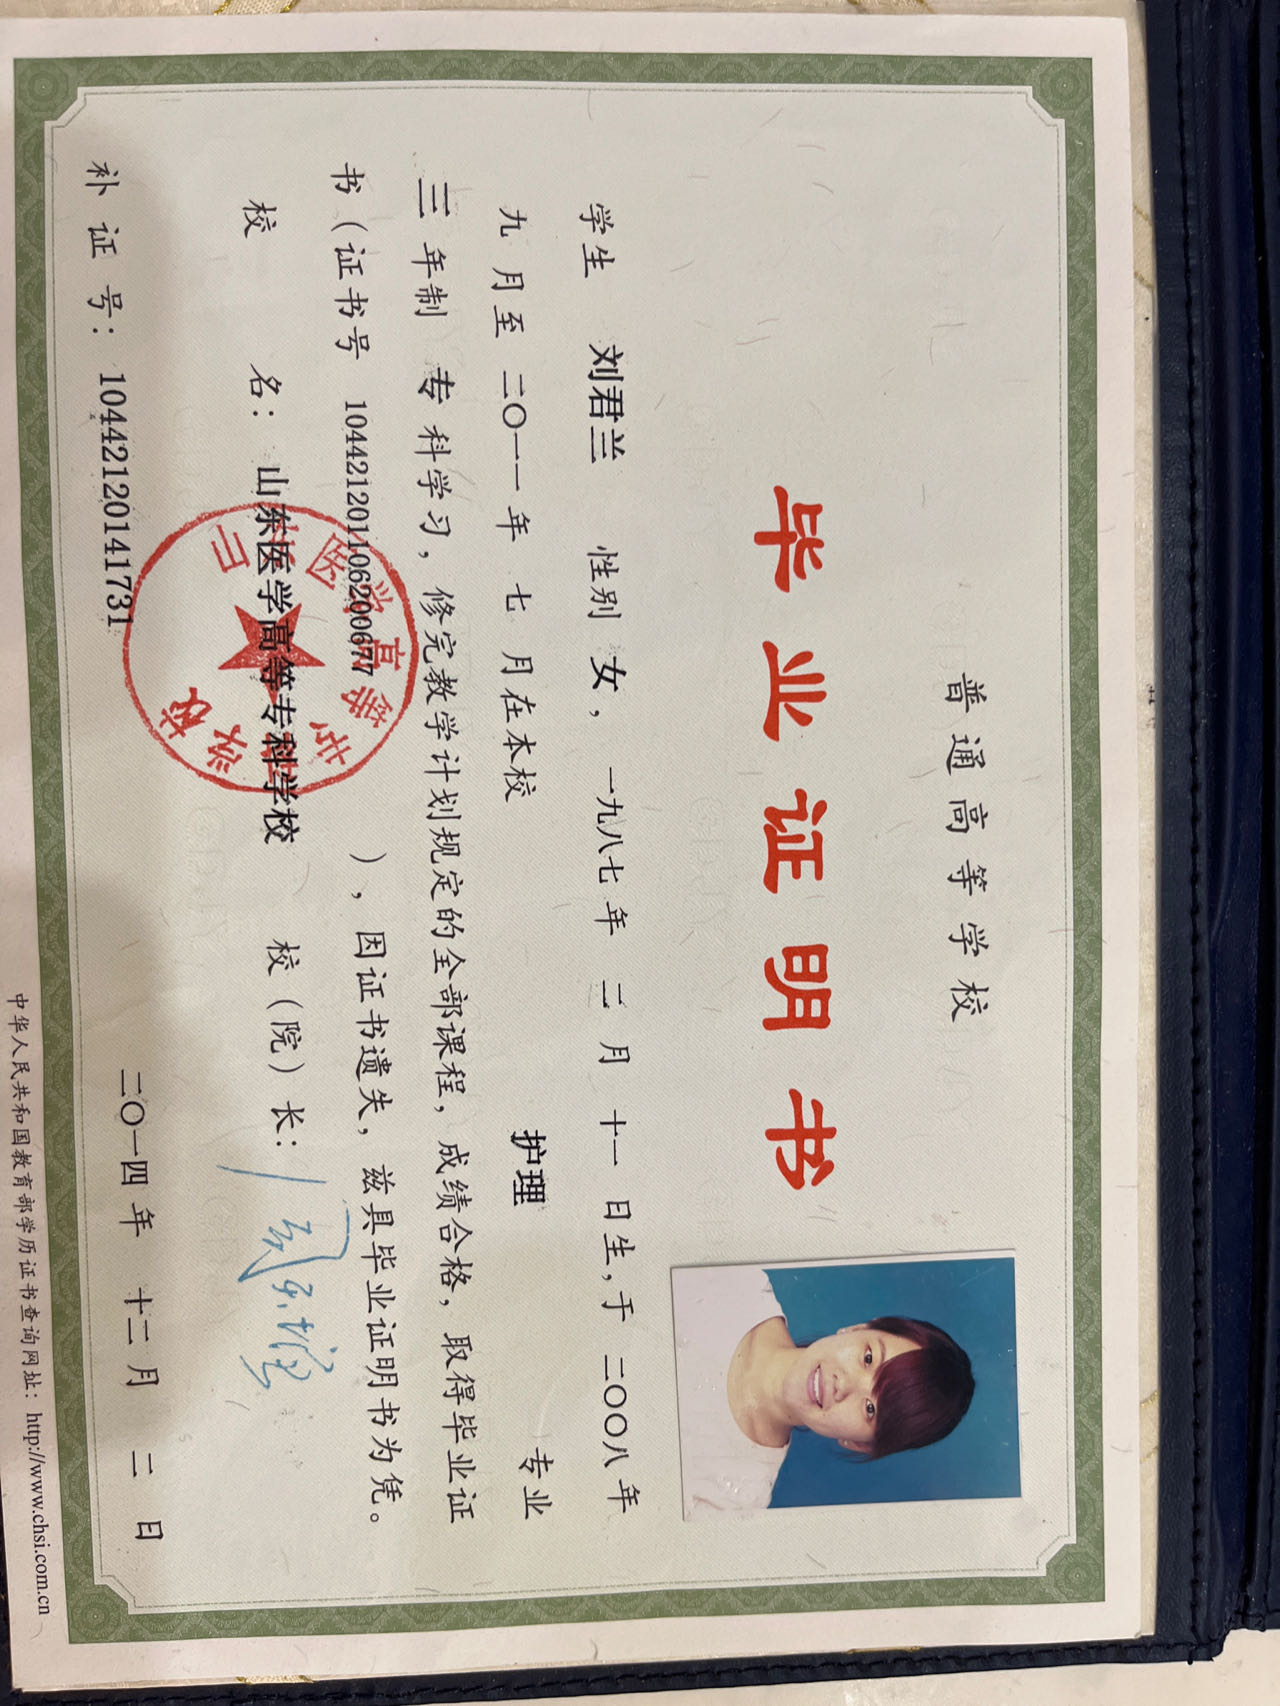 普通高等学校
毕业证明书
学生 刘君兰 性别 女，一九八七年 三月 十一 日生，于 二〇〇八年
九 月至 二〇一一年 七 月在本校 护理 专业
三 年制 专 科学习，修完教学计划规定的全部课程，成绩合格，取得毕业证
书（证书号 104421201106200677 ），因证书遗失，兹具毕业证明书为凭。
校 名：山东医学高等专科学校 校（院）长：
补 证 号：10442120141731 二〇一四年 十二月 二 日
中华人民共和国教育部学历证书查询网址：http://www.chsi.com.cn
山东医学高等专科学校